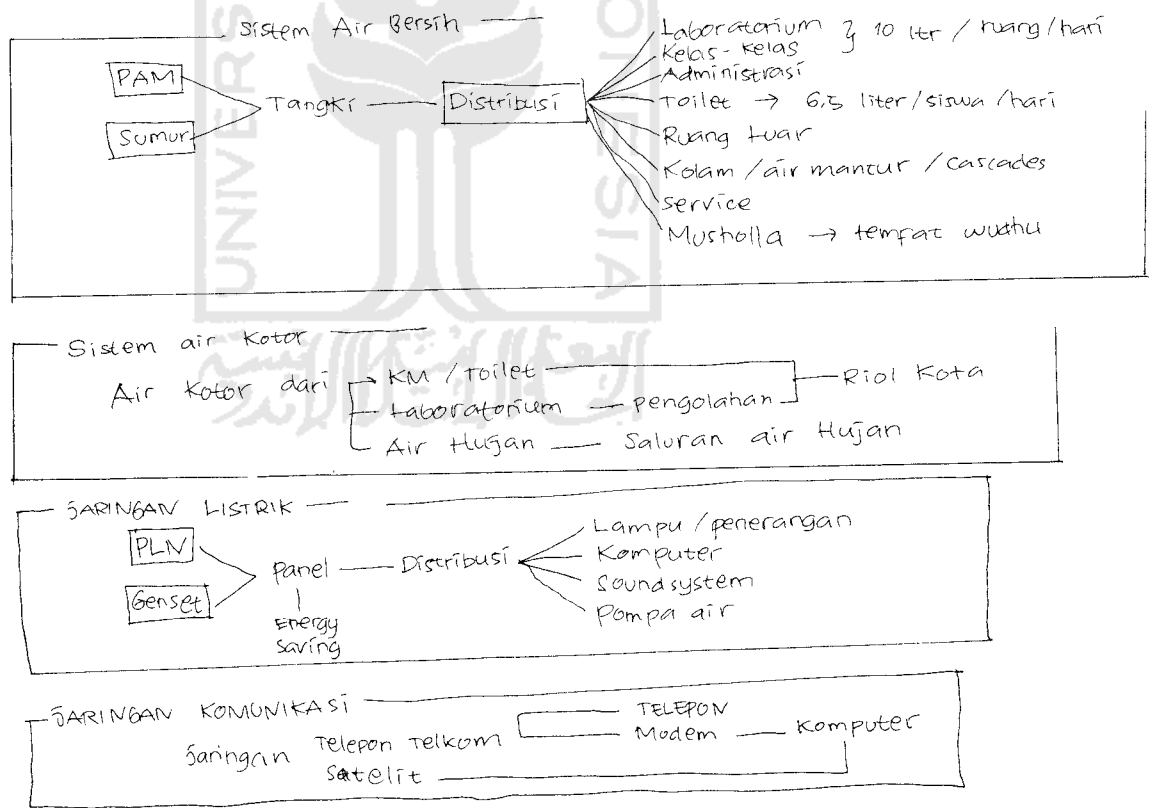 Sistem Air Bersih
PAM
Sumur
Tangki
Distribusi
Laboratorium } 10 ltr / ruang / hari
Kelas - kelas
Administrasi
Toilet → 6,5 liter / siswa / hari
Ruang luar
Kolam / air mancur / cascades
service
Musholla → tempat wudhu
Sistem air Kotor
Air Kotor dari
KM / Toilet
Laboratorium — pengolahan
Riol Kota
Air Hujan — Saluran air Hujan
JARINGAN LISTRIK
PLN
Genset
Panel — Distribusi
Energy
Saving
Lampu / penerangan
Komputer
Soundsystem
Pompa air
JARINGAN KOMUNIKASI
Jaringan Telepon Telkom
TELEPON
Modem — Komputer
Satelit